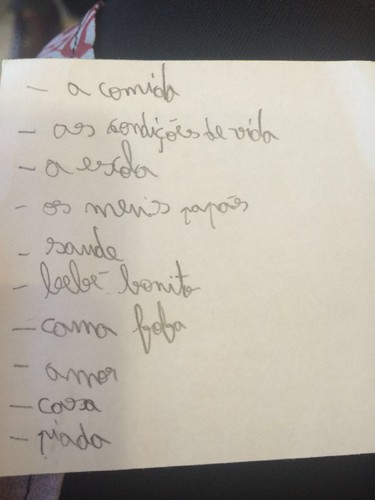 - a comida
- as condições de vida
- a escola
- os meus papás
- saude
- bebé bonito
- cama fofa
- amor
- casa
- piada